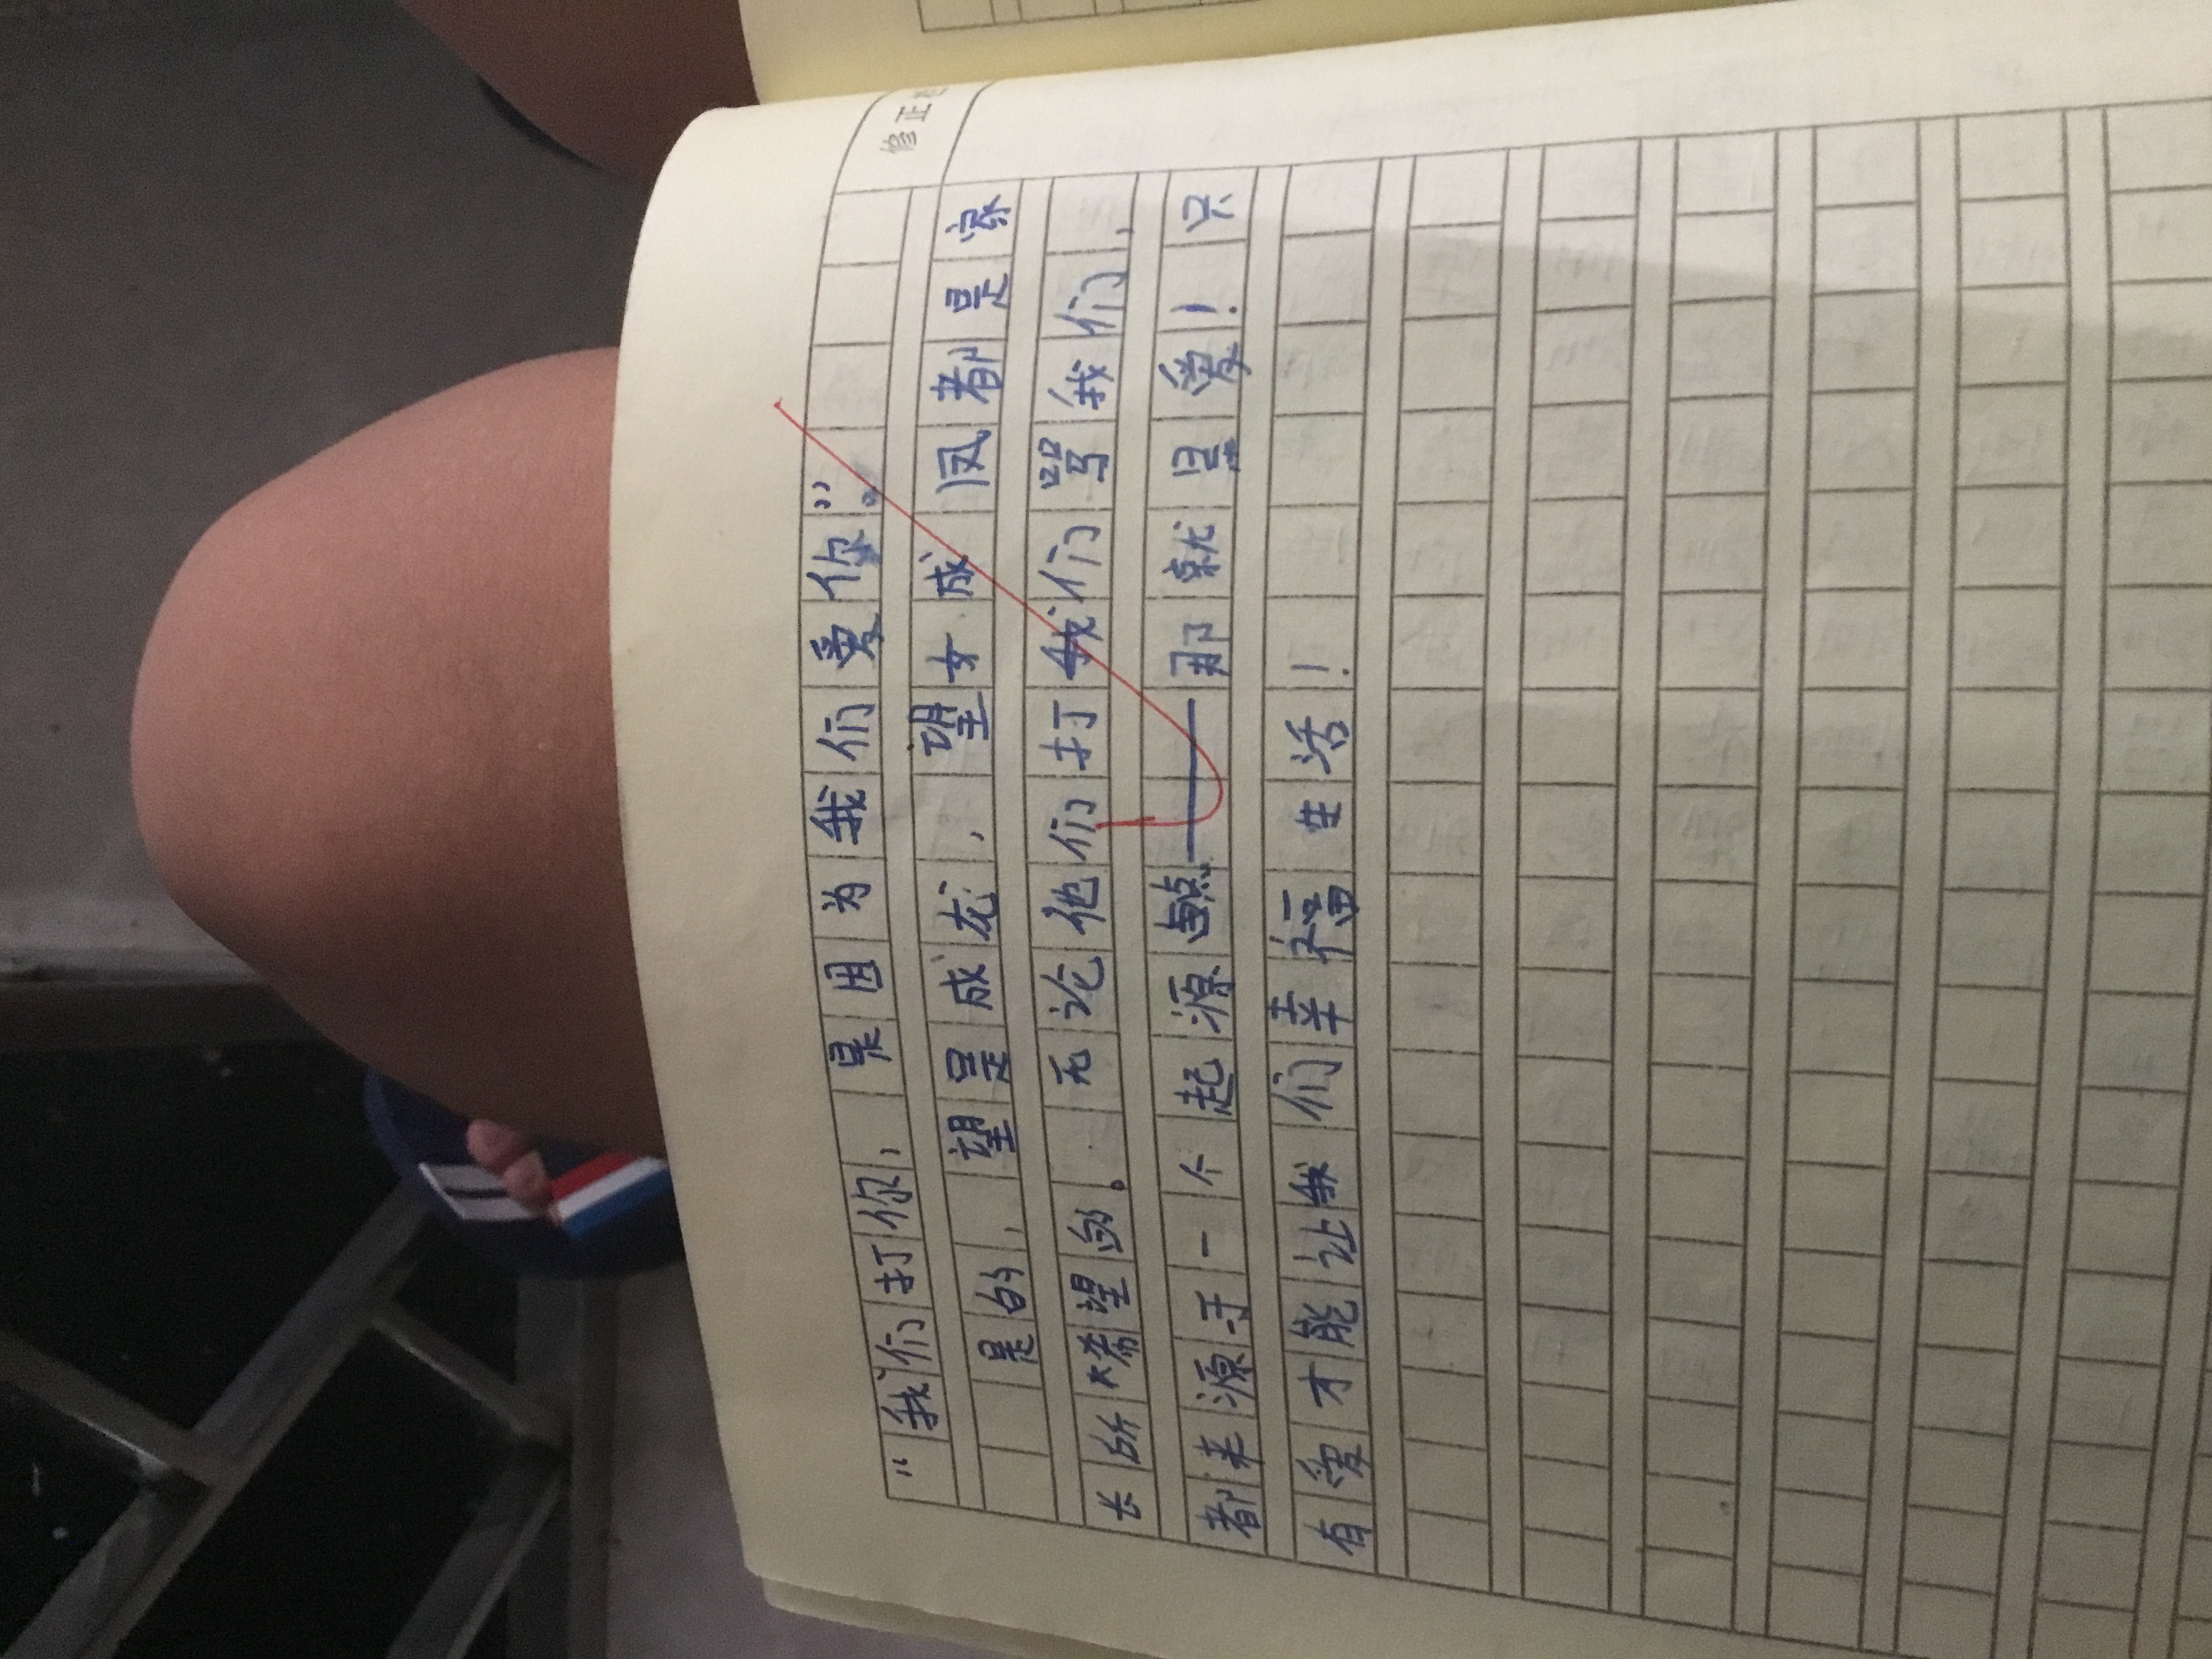 修正
“我们打你，是因为我们爱你”。
是的，望是成龙，望女成凤都是家
长所希望的。无论他们打我们骂我们，
都来源于一个起源点——那就是爱！只
有爱才能让我们幸福生活！